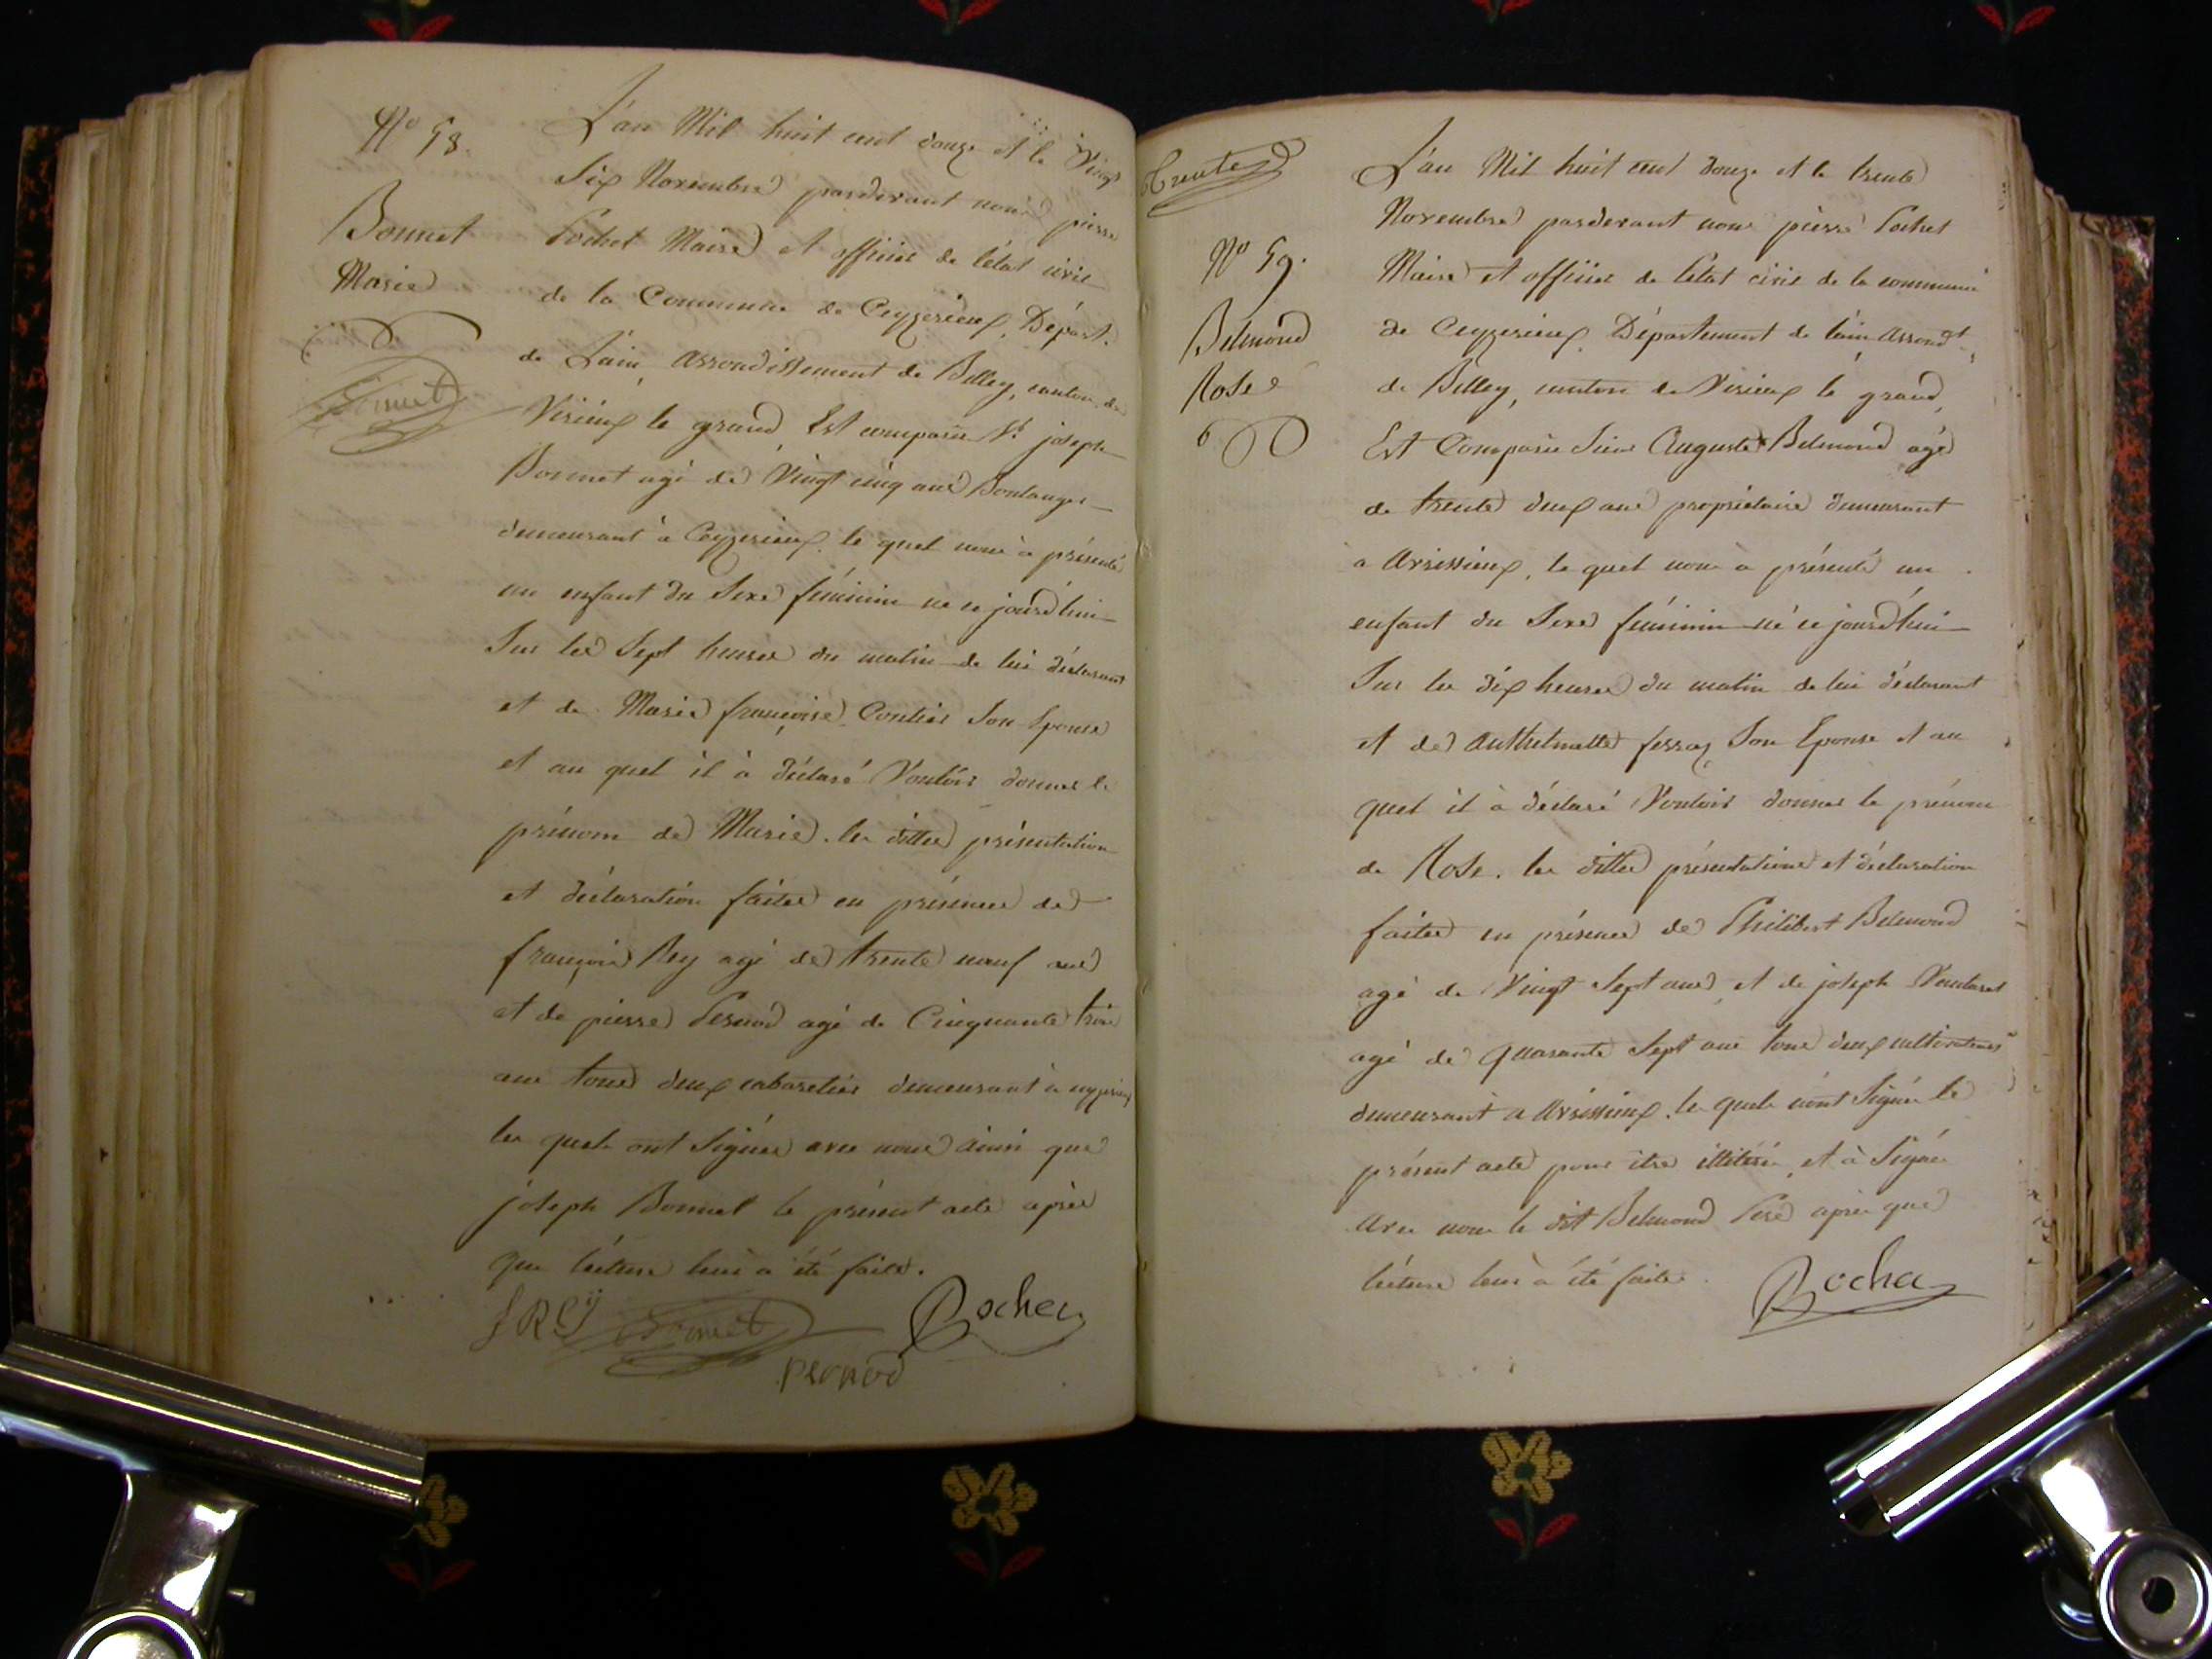 Nº 58.
Bonnet
Marie
L'an Mil huit cent douze et le Vingt
Six Novembre pardevant nous pierre
Pochet Maire et officier de l'état civil
de la Commune de Ceyzerieux, Départ.
de L'ain, arrondissement de Belley, canton de
Virieux le grand, Est comparu Sr. joseph
Bonnet agé de Vingt cinq ans Boulanger
demeurant à Ceyzerieux, le quel nous à présenté
un enfant du Sexe féminin né ce jourd'hui
Sur les Sept heures du matin de lui déclarant
et de Marie françoise Contier Son Epouse
et au quel il à déclaré Vouloir donner le
prénom de Marie. les dittes présentation
et déclaration faites en présence de
françois Rey agé de trente neuf ans
et de pierre Pernod agé de Cinquante trois
ans tous deux cabaretier demeurant à ceyzerieux
les quels ont Signés avec nous ainsi que
joseph Bonnet le présent acte après
que lécture leur à été faite.
f REY Bonnet Pochet
pernod
Trente
Nº 59.
Belmond
Rose
L'an Mil huit cent douze et le trente
Novembre pardevant nous pierre Pochet
Maire et officier de l'état civil de la commune
de Ceyzerieux, Département de l'ain, arrondt,
de Belley, canton de Virieux le grand,
Est Comparu Sieur Auguste Belmond agé
de trente deux ans propriétaire demeurant
à Avrissieux, le quel nous à présenté un
enfant du Sexe féminin né ce jourd'hui
Sur les dix heures du matin de lui déclarant
et de Anthelmette ferraz Son Epouse et au
quel il à déclaré Vouloir donner le prénom
de Rose. les dittes présentations et déclaration
faites en présence de Philibert Belmond
agé de Vingt Sept ans, et de joseph
agé de quarante Sept ans tous deux cultivateurs
demeurant à Avrissieux. les quels n'ont Signés le
présent acte pour être illitéré, et à Signé
avec nous le dit Belmond Père après que
lécture leur à été faite.
Pochet